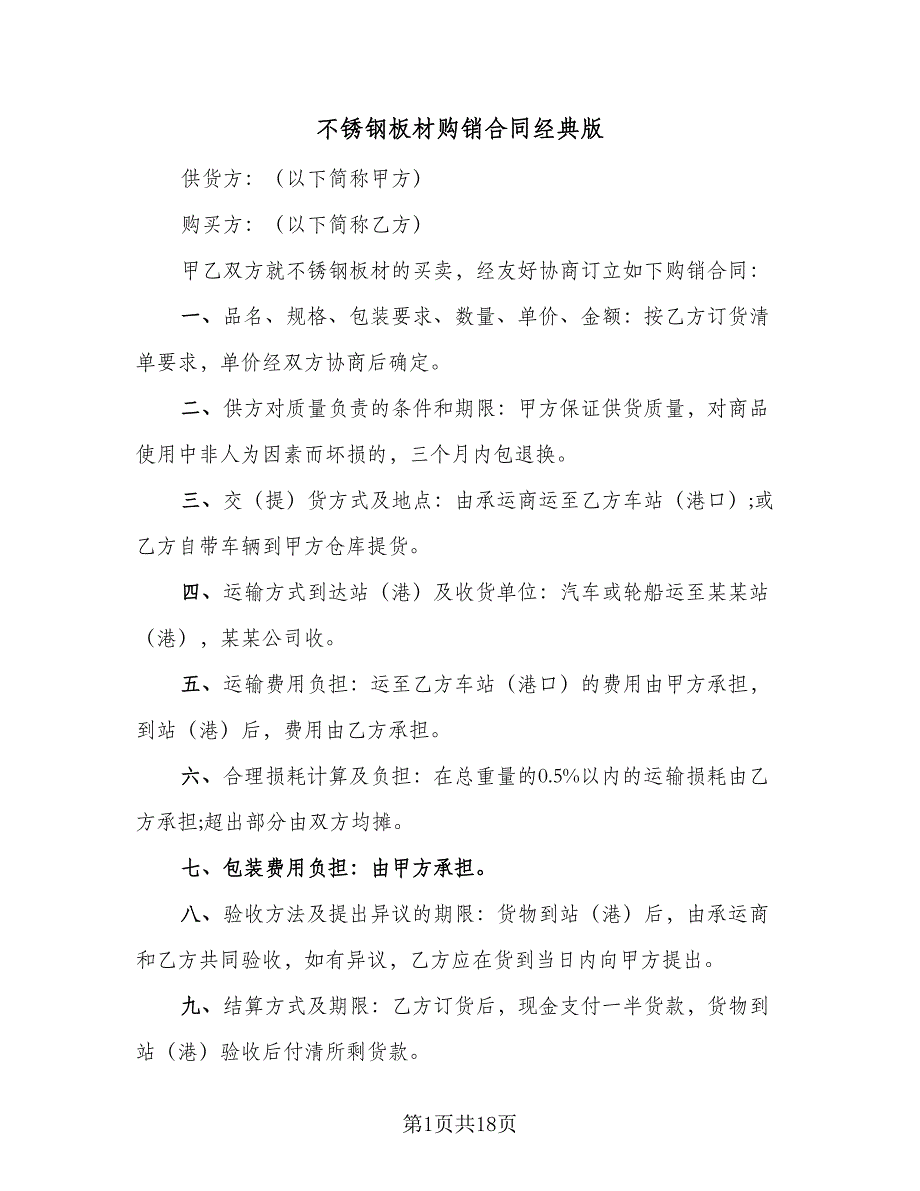 不锈钢板材购销合同经典版
供货方：（以下简称甲方）
购买方：（以下简称乙方）
甲乙双方就不锈钢板材的买卖，经友好协商订立如下购销合同：
一、品名、规格、包装要求、数量、单价、金额：按乙方订货清
单要求，单价经双方协商后确定。
二、供方对质量负责的条件和期限：甲方保证供货质量，对商品
使用中非人为因素而坏损的，三个月内包退换。
三、交（提）货方式及地点：由承运商运至乙方车站（港口）;或
乙方自带车辆到甲方仓库提货。
四、运输方式到达站（港）及收货单位：汽车或轮船运至某某站
（港），某某公司收。
五、运输费用负担：运至乙方车站（港口）的费用由甲方承担，
到站（港）后，费用由乙方承担。
六、合理损耗计算及负担：在总重量的0.5%以内的运输损耗由乙
方承担;超出部分由双方均摊。
七、包装费用负担：由甲方承担。
八、验收方法及提出异议的期限：货物到站（港）后，由承运商
和乙方共同验收，如有异议，乙方应在货到当日内向甲方提出。
九、结算方式及期限：乙方订货后，现金支付一半货款，货物到
站（港）验收后付清所剩货款。
第1页共18页